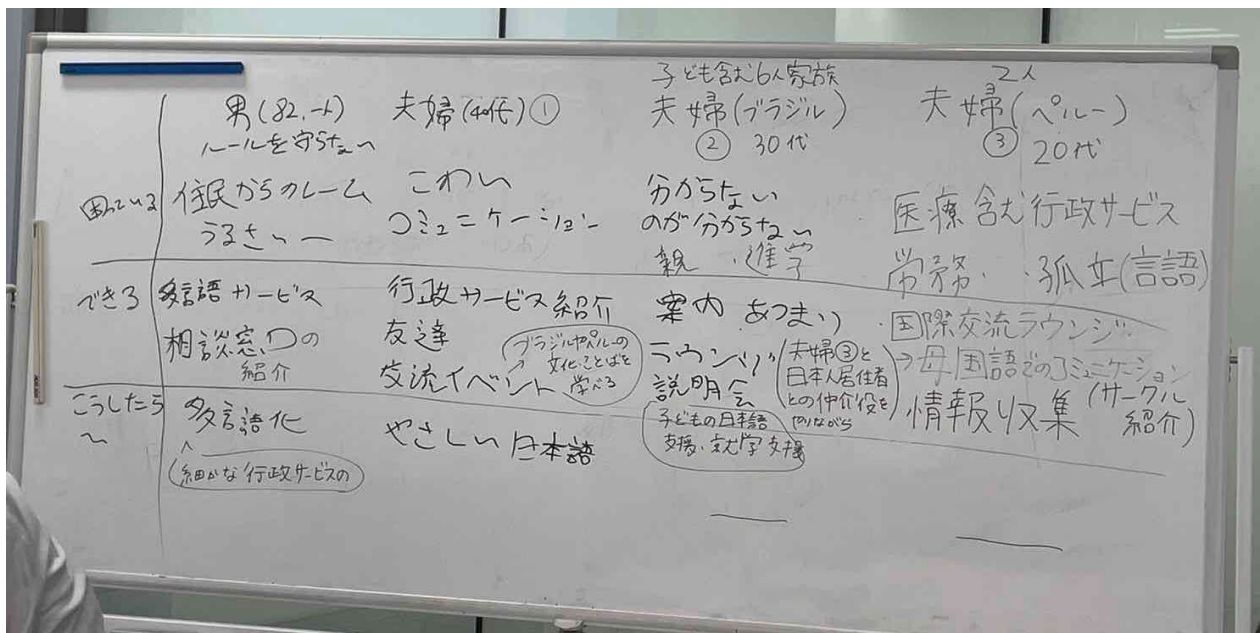 男(82,一人)
ルールを守らない
夫婦(40代)①
子ども含む6人家族
夫婦(ブラジル)
② 30代
2人
夫婦(ペルー)
③ 20代
困っている
住民からのクレーム
うるさいー
こわい
コミュニケーション
分からない
のが分からない
親・進学
医療含む行政サービス
労務・・孤立(言語)
できる
多言語サービス
相談窓口の
紹介
行政サービス紹介
友達
交流イベント
ブラジルやペルーの
文化・ことばを
学べる
案内 あつまり
ラウンジ
説明会
夫婦③と
日本人居住者
との仲介役を
やりながら
・国際交流ラウンジ・
→母国語でのコミュニケーション
情報収集(サークル
紹介)
こうしたら
〜
多言語化
細かな行政サービスの
やさしい日本語
子どもの日本語
支援、就学支援